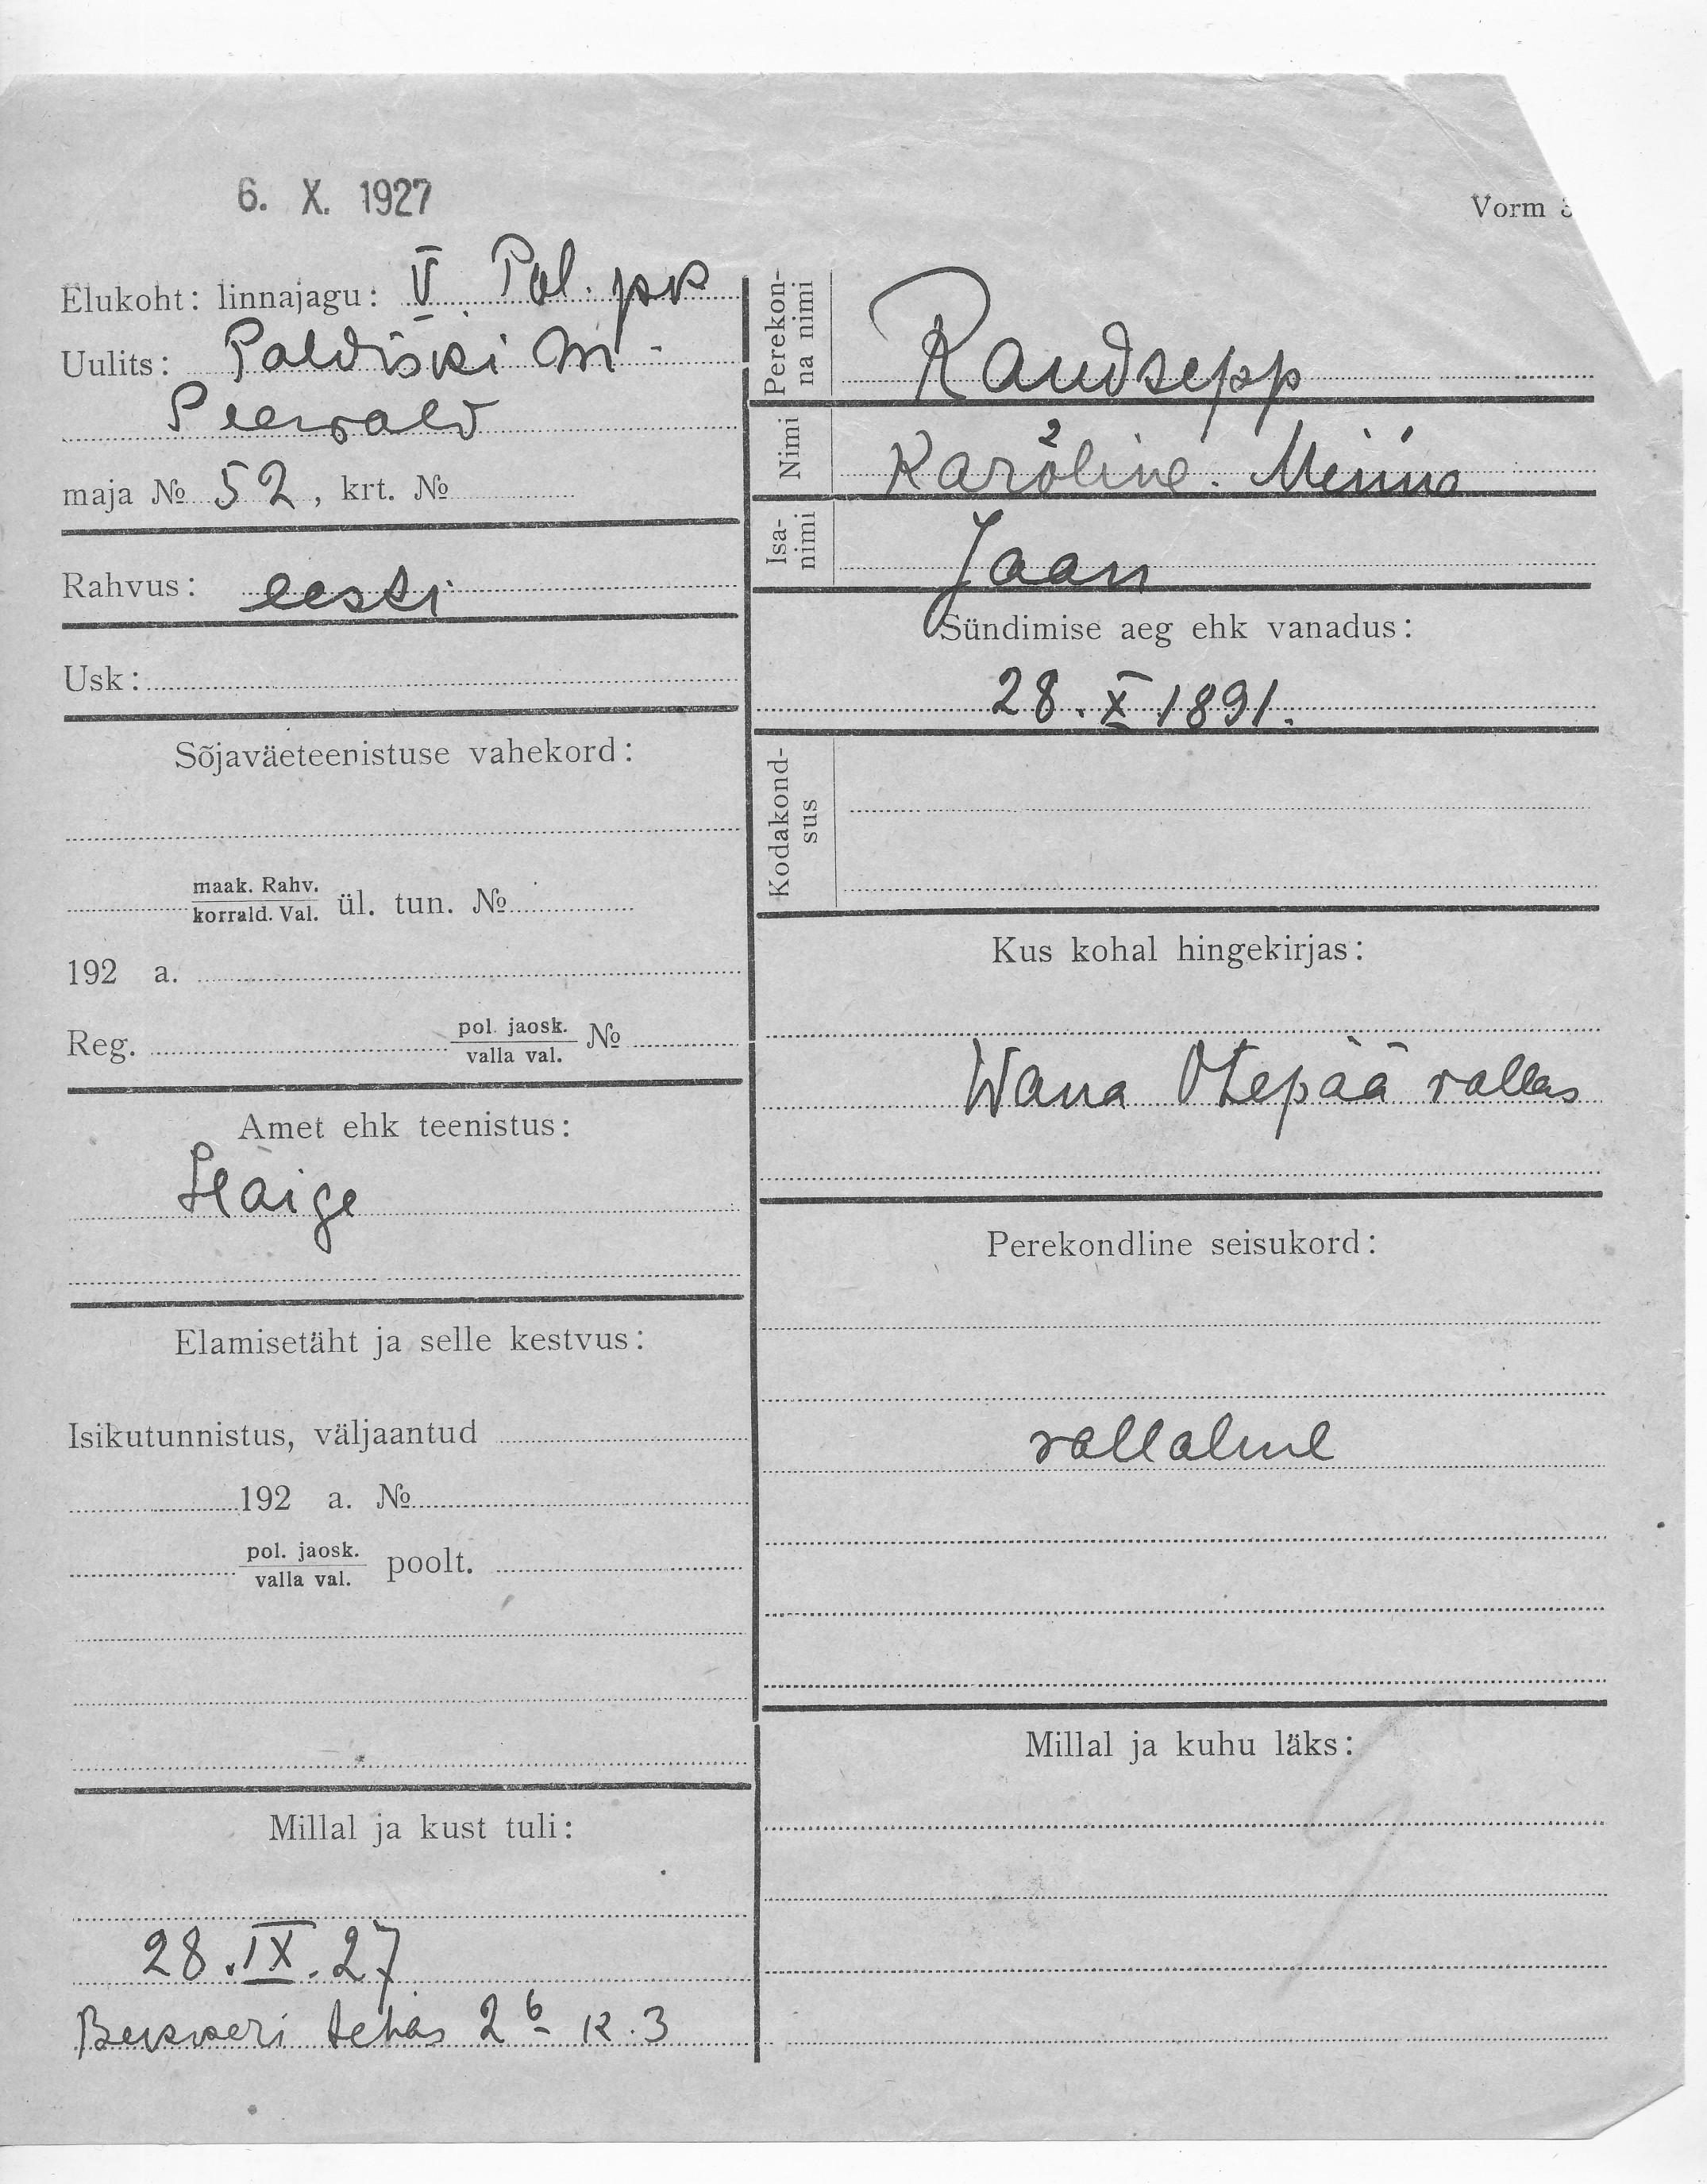 6. X. 1927
Vorm
Elukoht: linnajagu: V Pol. jsk
Uulits: Paldiski m-
Seewald
maja № 52, krt. №
Rahvus: eesti
Usk:
Sõjaväeteenistuse vahekord:
maak. Rahv.
korrald. Val. ül. tun. №
192 a.
Reg. pol. jaosk. №
valla val.
Amet ehk teenistus:
Haige
Elamisetäht ja selle kestvus:
Isikutunnistus, väljaantud
192 a. №
pol. jaosk.
valla val. poolt.
Millal ja kust tuli:
28.IX.27
Bekkeri tehas 2 6 k. 3
Perekon-
na nimi
Raudsepp
Nimi
2
Karoline. Miina
Isa-
nimi
Jaan
Sündimise aeg ehk vanadus:
28. X 1891.
Kodakond-
sus
Kus kohal hingekirjas:
Wana Otepää vallas
Perekondline seisukord:
vallaline
Millal ja kuhu läks: